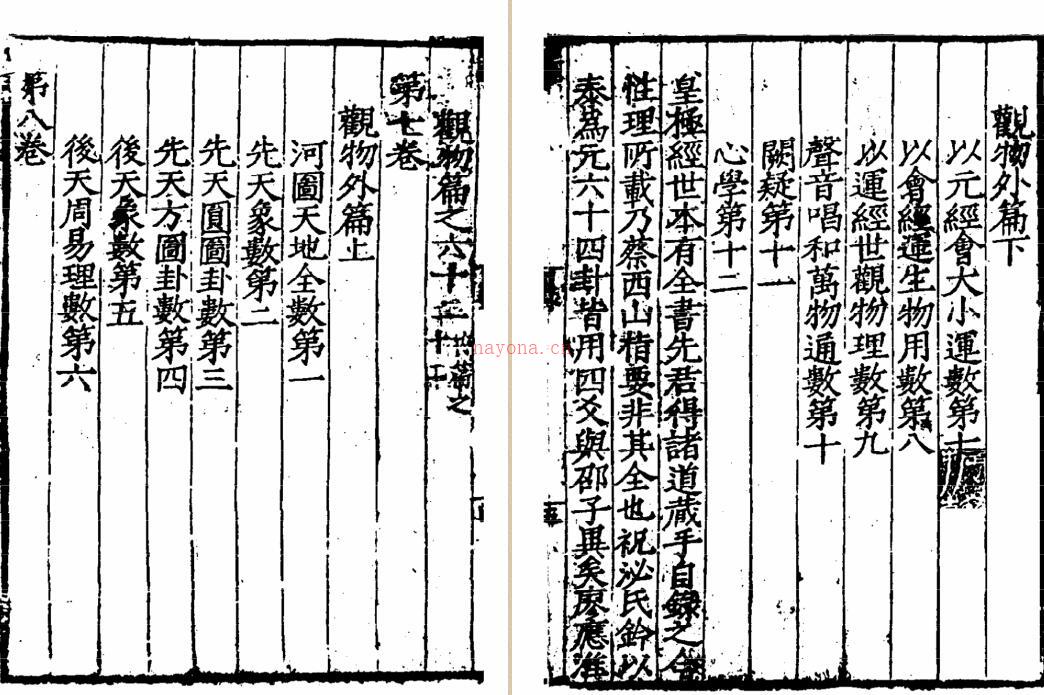 觀物篇之六十
第七卷
觀物外篇上
河圖天地全數第一
先天象數第二
先天圓圖卦數第三
先天方圖卦數第四
後天象數第五
後天周易理數第六
第八卷
觀物外篇下
以元經會大小運數第七
以會經運生物用數第八
以運經世觀物理數第九
聲音唱和萬物通數第十
闕疑第十一
心學第十二
皇極經世本有全書先君得諸道藏手自錄之今
性理所載乃蔡西山指要非其全也祝泌氏鈐以
泰為元六十四卦皆用四爻與邵子異矣廖應淮
nayona.cn